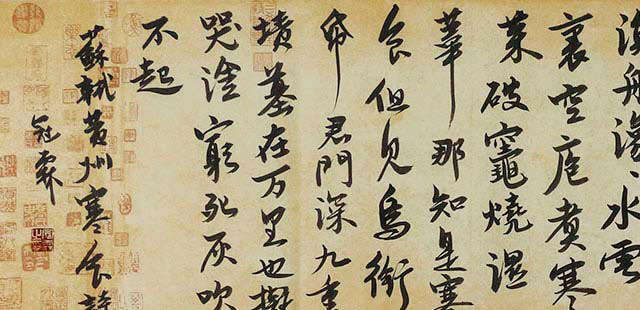 漁舟濛〻水雲
裏空庖煮寒
菜破竈燒濕
葦那知是寒
食但見烏銜
帋君門深九重
墳墓在万里也擬
哭塗窮死灰吹
不起
蘇軾黄州寒食詩
冠霖